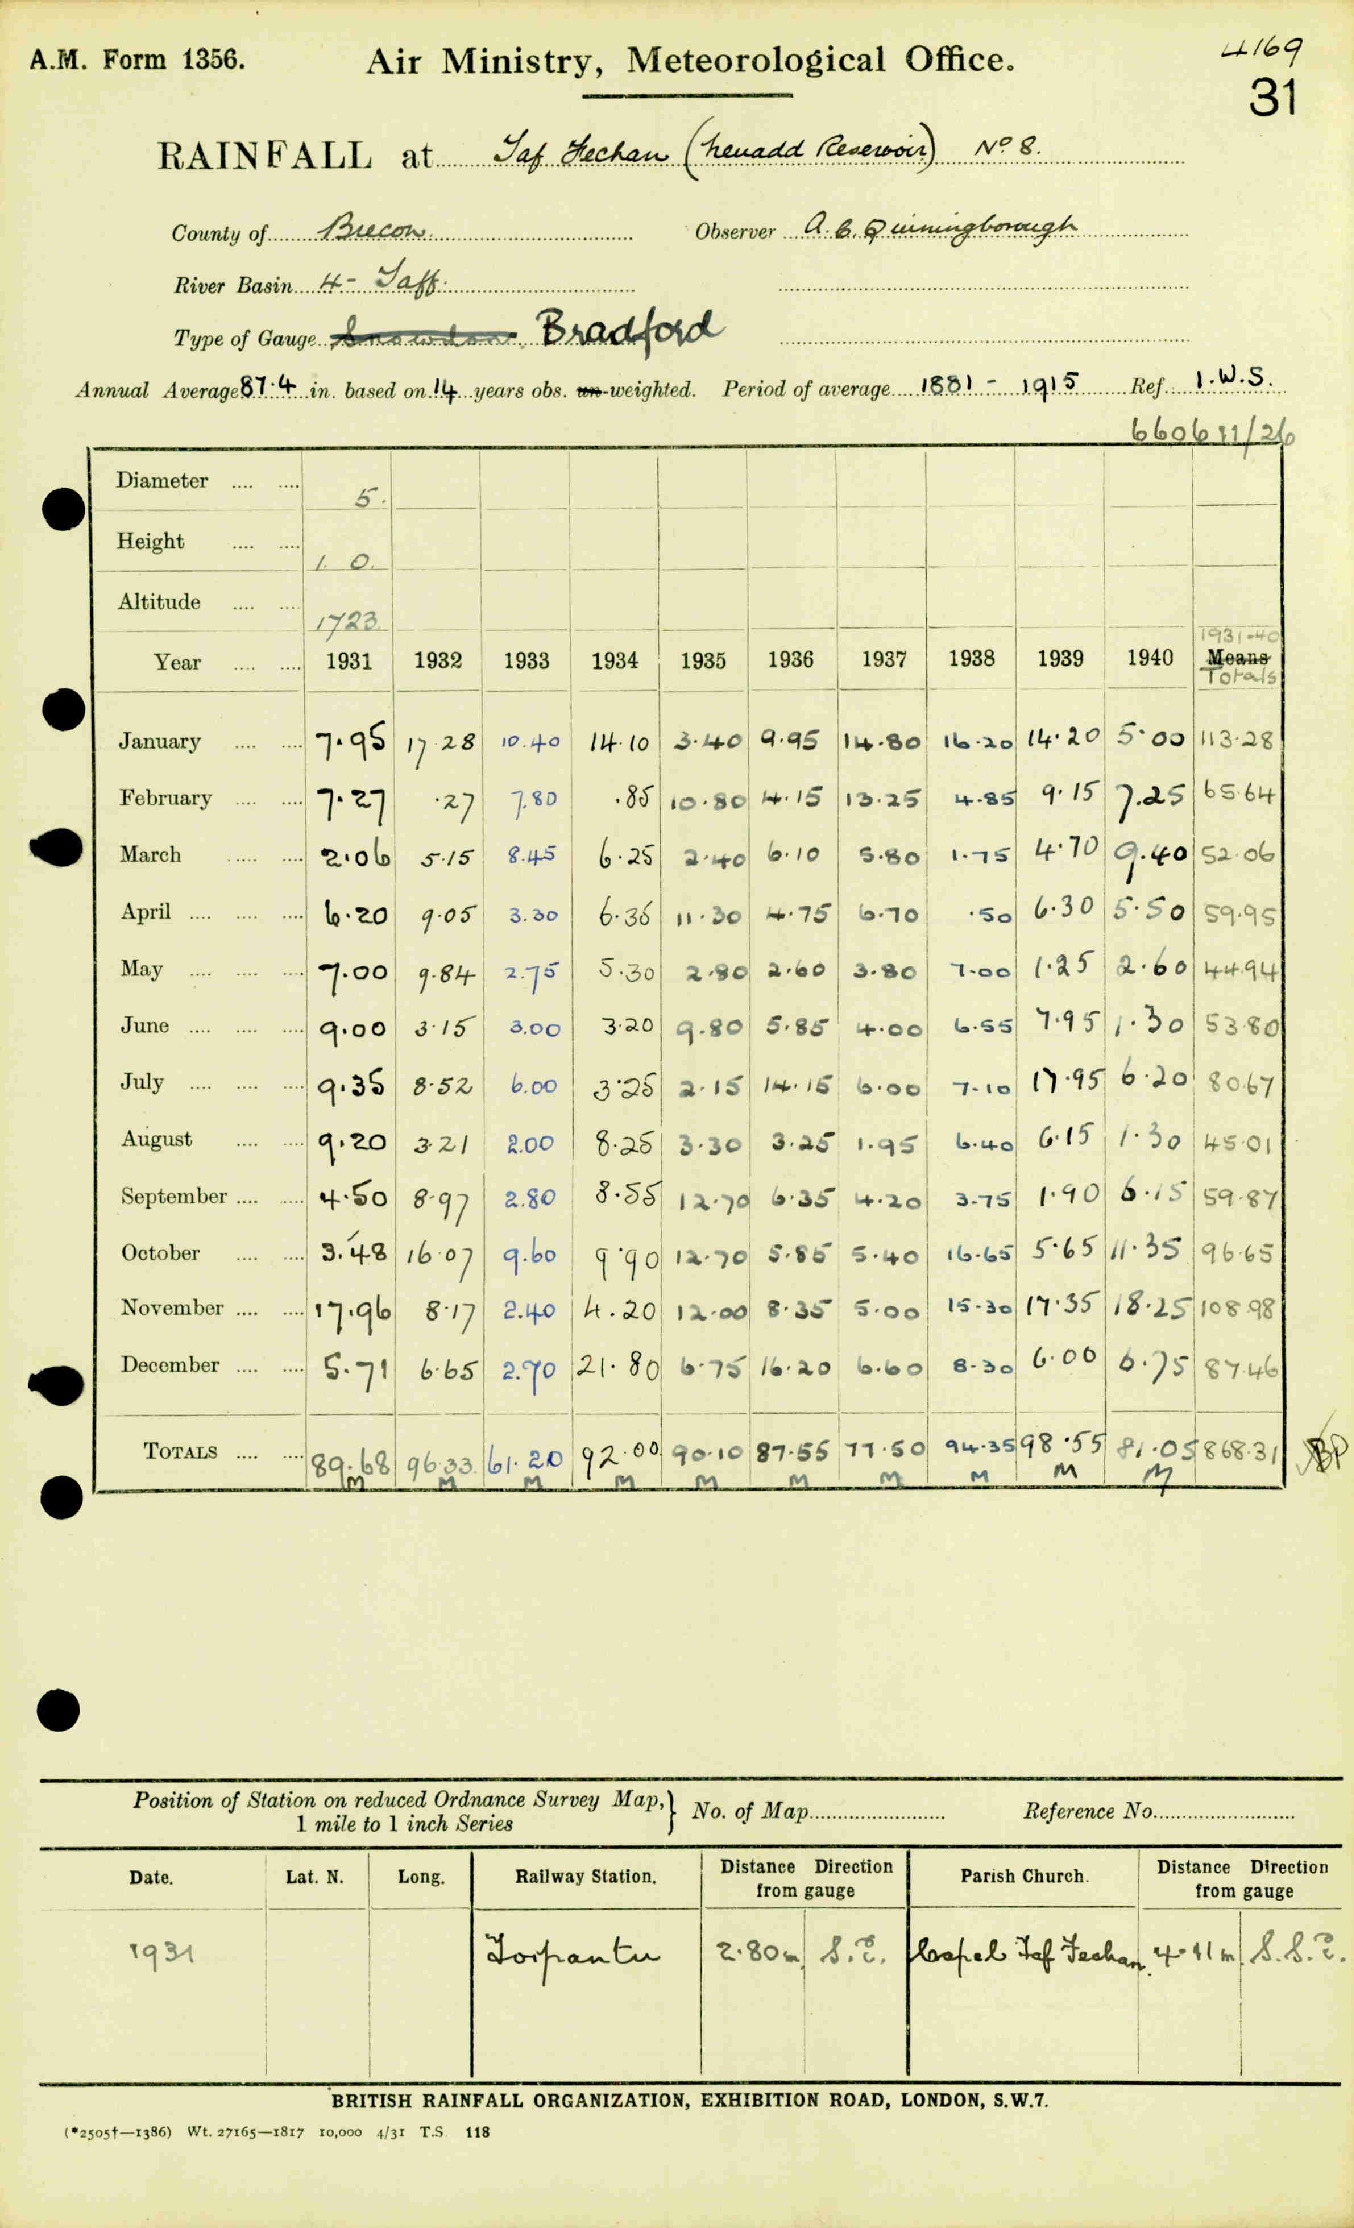 A.M. Form 1356.
Air Ministry, Meteorological Office.
4169
31
RAINFALL at Taf Fechan (Neuadd Reservoir) No 8.
County of Brecon. Observer A. C. Quinningborough
River Basin 4 - Taff.
Type of Gauge Snowdon Bradford
Annual Average 87.4 in. based on 14 years obs. un-weighted. Period of average 1881 - 1915 Ref. I.W.S.
660611/26
Diameter 5.
Height 1. 0.
Altitude 1723
1931-40
Year 1931 1932 1933 1934 1935 1936 1937 1938 1939 1940 Means
Totals
January 7.95 17.28 10.40 14.10 3.40 9.95 14.80 16.20 14.20 5.00 113.28
February 7.27 .27 7.80 .85 10.80 4.15 13.25 4.85 9.15 7.25 65.64
March 2.06 5.15 8.45 6.25 2.40 6.10 5.80 1.75 4.70 9.40 52.06
April 6.20 9.05 3.30 6.35 11.30 4.75 6.70 .50 6.30 5.50 59.95
May 7.00 9.84 2.75 5.30 2.80 2.60 3.80 7.00 1.25 2.60 44.94
June 9.00 3.15 3.00 3.20 9.80 5.85 4.00 6.55 7.95 1.30 53.80
July 9.35 8.52 6.00 3.25 2.15 14.15 6.00 7.10 17.95 6.20 80.67
August 9.20 3.21 2.00 8.25 3.30 3.25 1.95 6.40 6.15 1.30 45.01
September 4.50 8.97 2.80 8.55 12.70 6.35 4.20 3.75 1.90 6.15 59.87
October 3.48 16.07 9.60 9.90 12.70 5.85 5.40 16.65 5.65 11.35 96.65
November 17.96 8.17 2.40 4.20 12.00 8.35 5.00 15.30 17.35 18.25 108.98
December 5.71 6.65 2.70 21.80 6.75 16.20 6.60 8.30 6.00 6.75 87.46
TOTALS 89.68 96.33 61.20 92.00 90.10 87.55 77.50 94.35 98.55 81.05 868.31 BP
M M M M M M M M M M
Position of Station on reduced Ordnance Survey Map,
1 mile to 1 inch Series
No. of Map Reference No.
Date. Lat. N. Long. Railway Station. Distance Direction from gauge Parish Church. Distance Direction from gauge
1931 Torpantu 2.80m S.E. Capel Taf Fechan 4.11m S.S.E.
BRITISH RAINFALL ORGANIZATION, EXHIBITION ROAD, LONDON, S.W.7.
(*2505†—1386) Wt. 27165—1817 10,000 4/31 T.S. 118